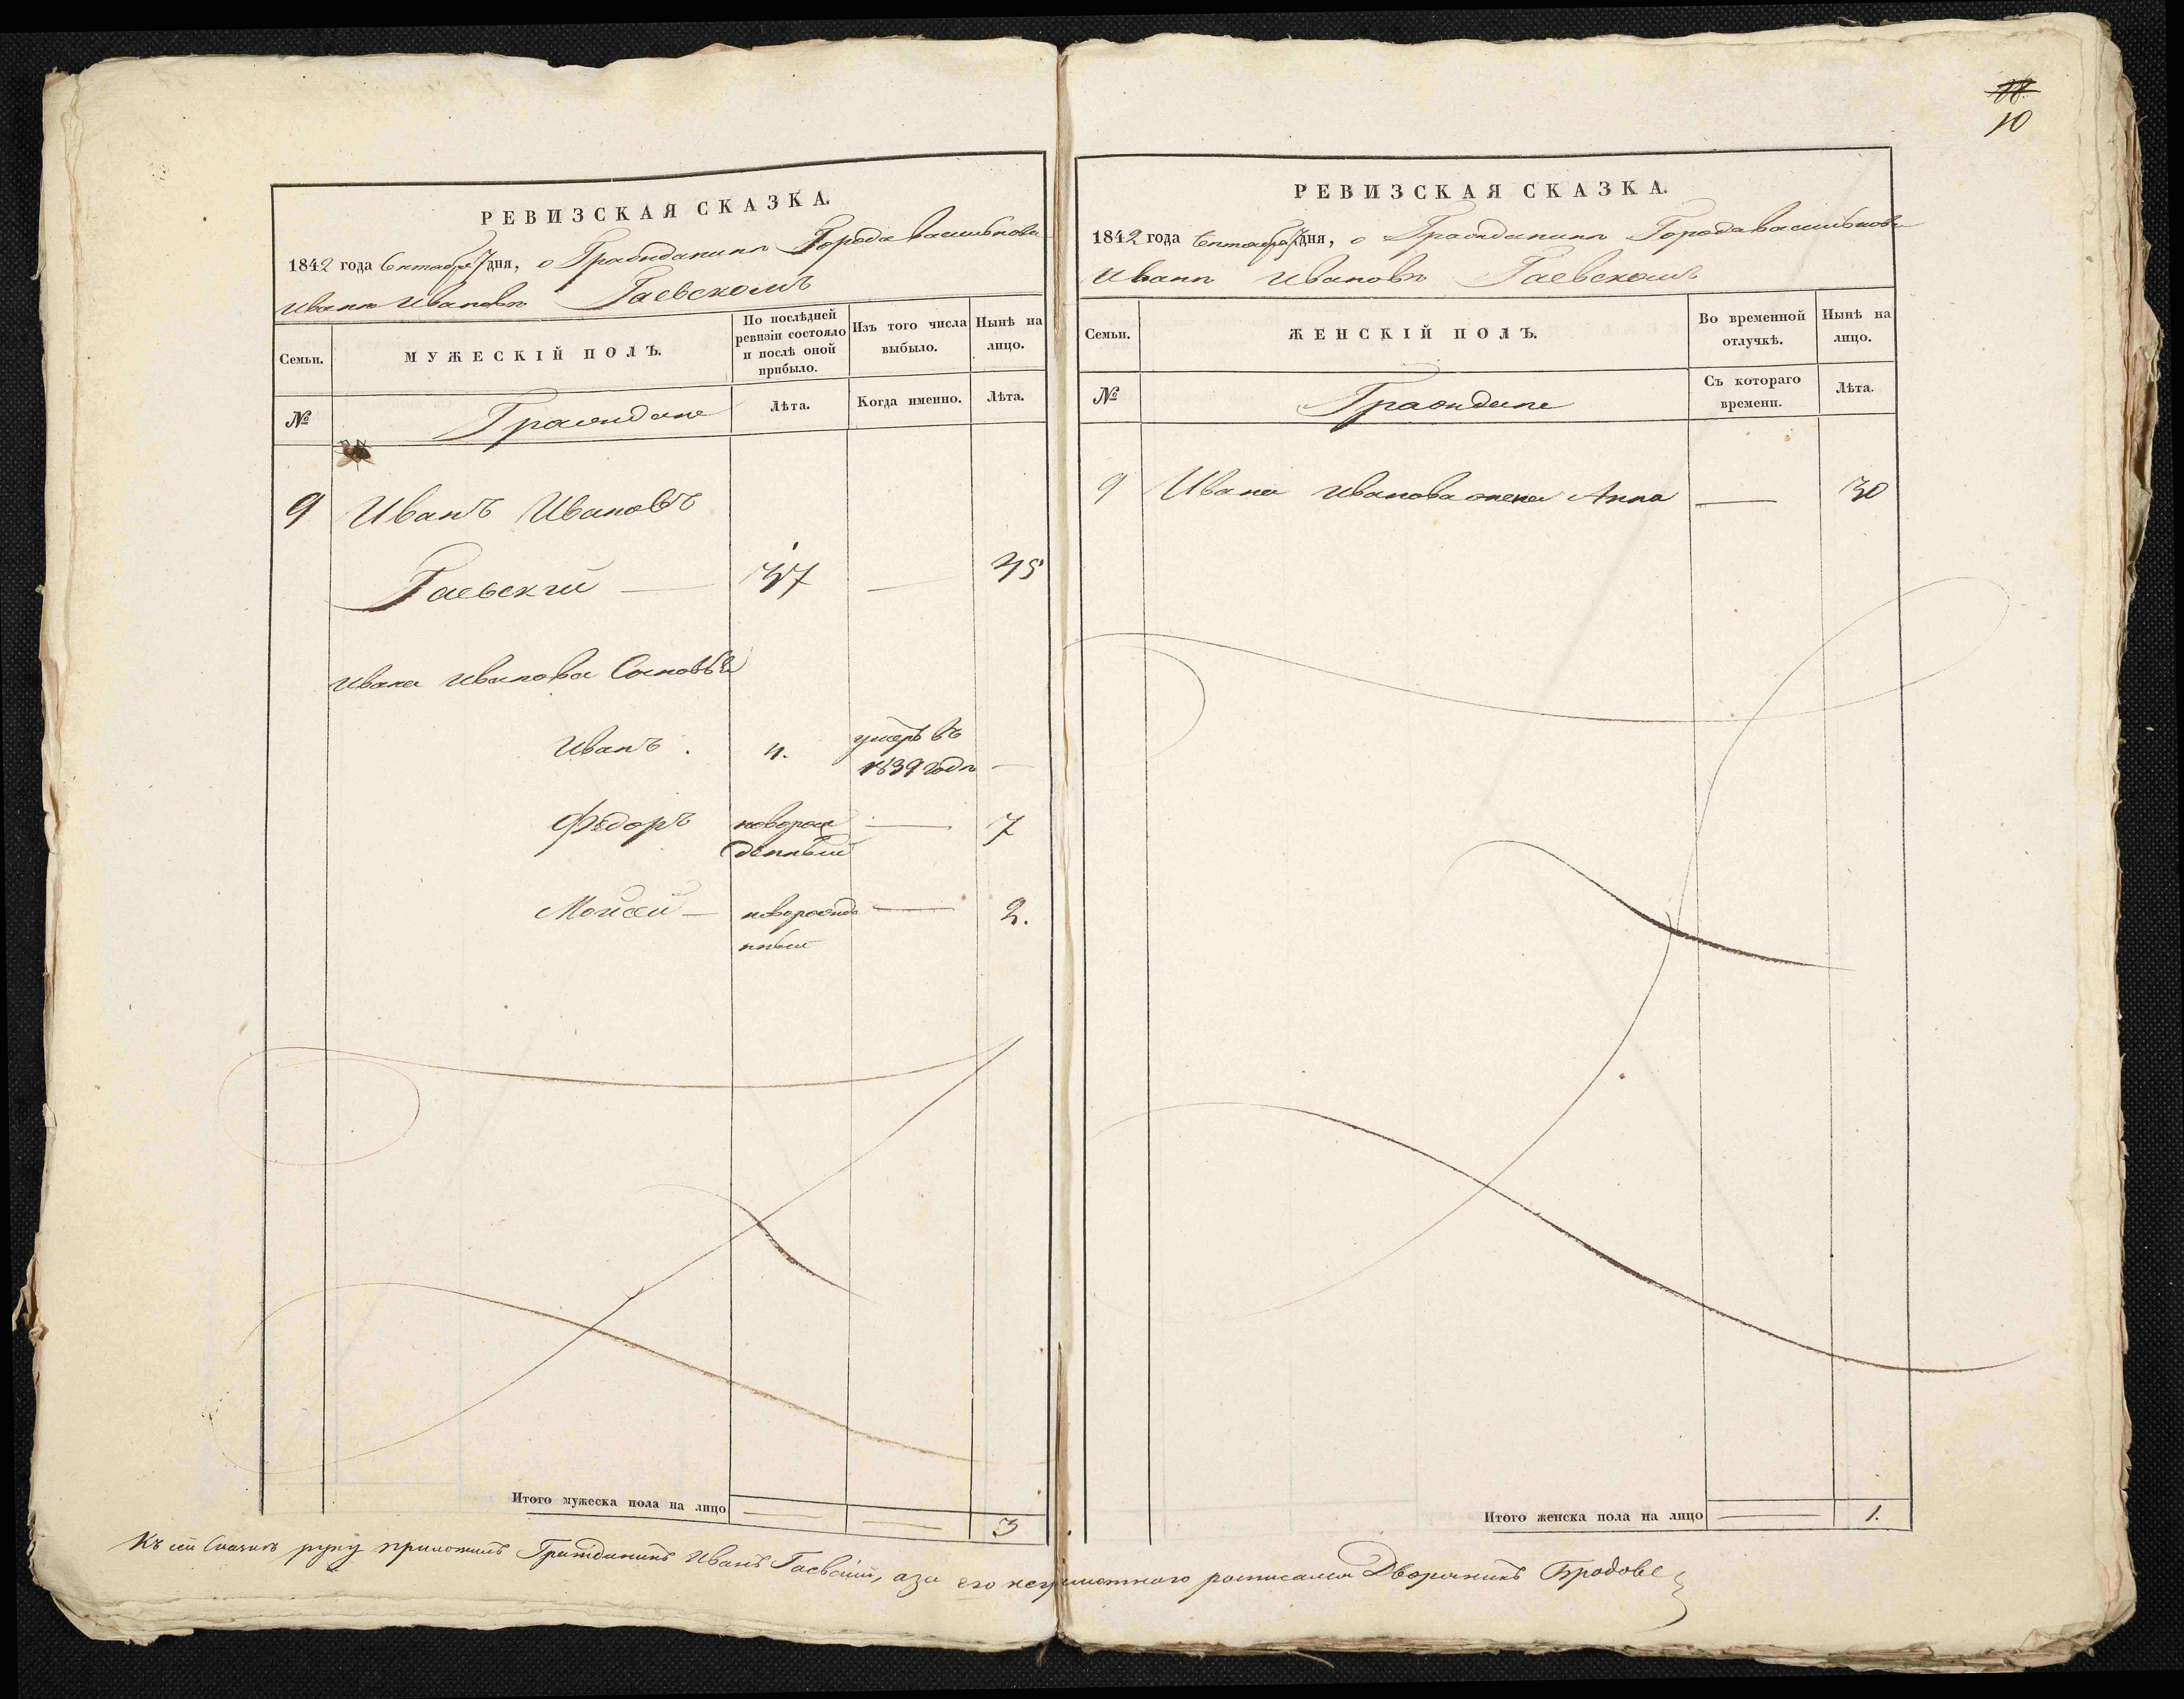 10
РЕВИЗСКАЯ СКАЗКА.
1842 года Октября 7 дня, о Гражданинѣ Города Василькова
Иванѣ Ивановѣ Гаевскомъ
Семьи.
МУЖЕСКІЙ ПОЛЪ.
По послѣдней ревизіи состояло и послѣ оной прибыло.
Изъ того числа выбыло.
Нынѣ на лицо.
№
Граждане
Лѣта.
Когда именно.
Лѣта.
9 Иванъ Ивановъ
Гаевскій — 37 — 45
Ивана Иванова Сыновья
Иванъ . 4. умеръ въ
1839 годѣ —
Фёдоръ новорож — 7
денный
Мойсей — новорожде — 2.
нный
Итого мужеска пола на лицо — — 3
РЕВИЗСКАЯ СКАЗКА.
1842 года Октября 7 дня, о Гражданинѣ Города Василькова
Иванѣ Ивановѣ Гаевскомъ
Семьи.
ЖЕНСКІЙ ПОЛЪ.
Во временной отлучкѣ.
Нынѣ на лицо.
№
Граждане
Съ котораго времени.
Лѣта.
9 Ивана Иванова жена Анна — 30
Итого женска пола на лицо — 1.
Къ сей Сказкѣ руку приложилъ Гражданинъ Иванъ Гаевскій, а за его неграмотного росписался Дворянинъ